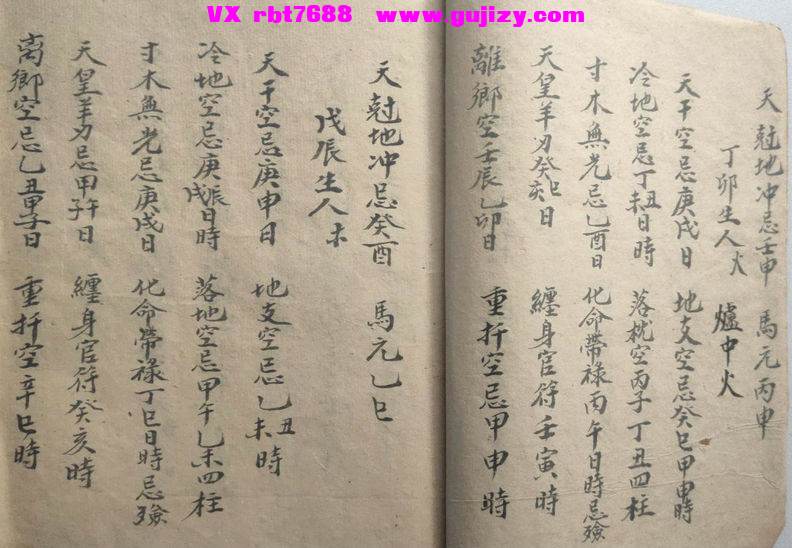 VX rbt7688 www.gujizy.com
天尅地冲忌壬申 馬元丙申
丁卯生人火 爐中火
天干空忌庚戌日 地支空忌癸巳甲申時
冷地空忌丁丑未日時 落枕空丙子丁丑四柱
寸木無光忌乙酉日 化命帶祿丙午日時忌殮
天皇羊刃癸巳亥日 纏身官符壬寅時
離鄉空壬辰乙卯日 重拆空忌甲申時
天尅地冲忌癸酉 馬元乙巳
戊辰生人木
天干空忌庚申日 地支空忌乙丑未時
冷地空忌庚辰戌日時 落地空忌甲午乙未四柱
寸木無光忌庚戌日 化命帶祿丁巳日時忌殮
天皇羊刃忌甲午子日 纏身官符癸亥時
离鄉空忌乙丑甲子日 重拆空辛巳時